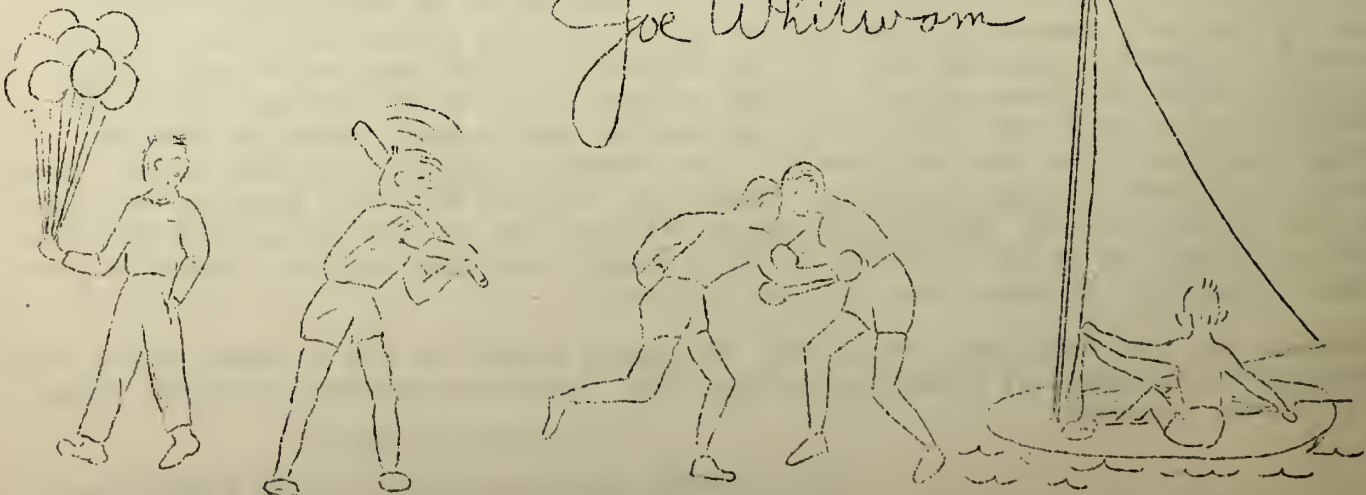 Joe Whitwam